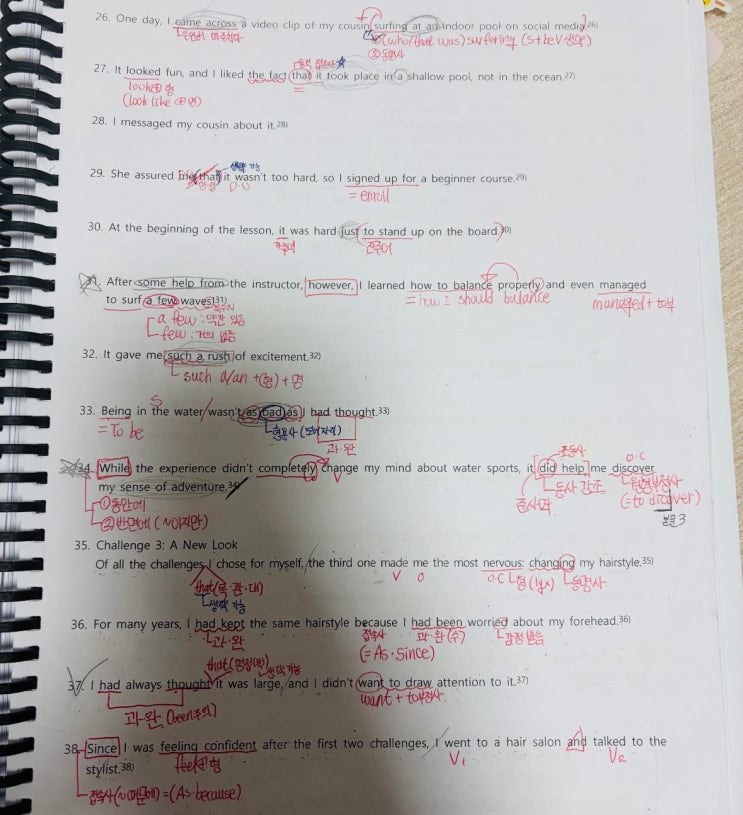 26. One day, I came across a video clip of my cousin surfing at an indoor pool on social media.26)
우연히 마주치다
(who/that was) surfering (S+be V 생략)
② 동명사
동격 접속사☆
27. It looked fun, and I liked the fact that it took place in a shallow pool, not in the ocean.27)
look+형
(look like+명)
28. I messaged my cousin about it.28)
생략 가능
29. She assured me that it wasn't too hard, so I signed up for a beginner course.29)
I·O D·O
= enroll
30. At the beginning of the lesson, it was hard just to stand up on the board.30)
가주어 진주어
31. After some help from the instructor, however, I learned how to balance properly and even managed
= how I should balance
managed + to부
to surf a few waves.31)
a few : 약간 있음
few : 거의 없음
32. It gave me such a rush of excitement.32)
such a/an + (형) + 명
S
33. Being in the water wasn't as bad as I had thought.33)
= To be
형용사
과·완
조동사 O·C
34. While the experience didn't completely change my mind about water sports, it did help me discover
V
준사역 동사 강조 원형부정사
my sense of adventure.34)
(= to dicover)
① 동안에
② 반면에 (~이지만)
본문 3
35. Challenge 3: A New Look
Of all the challenges I chose for myself, the third one made me the most nervous: changing my hairstyle.35)
that (목·관·대) V O O·C 형 (ly x) 동명사
생략 가능
36. For many years, I had kept the same hairstyle because I had been worried about my forehead.36)
과·완 접속사 과·완(수) 감정 받음
(= As·since)
that (명접(목)) 생략 가능
37. I had always thought it was large, and I didn't want to draw attention to it.37)
want + to부정사
과·완 (been주의)
38. Since I was feeling confident after the first two challenges, I went to a hair salon and talked to the
feel+형 V₁ V₂
stylist.38)
접속사 (~때문에) = (As·because)